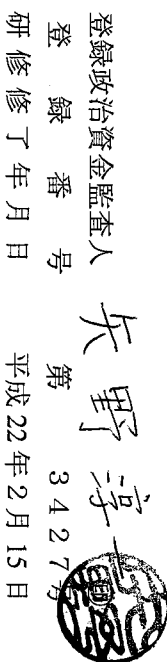 登録政治資金監査人 矢野 淳一
登録番号 第3427号
研修修了年月日 平成22年2月15日